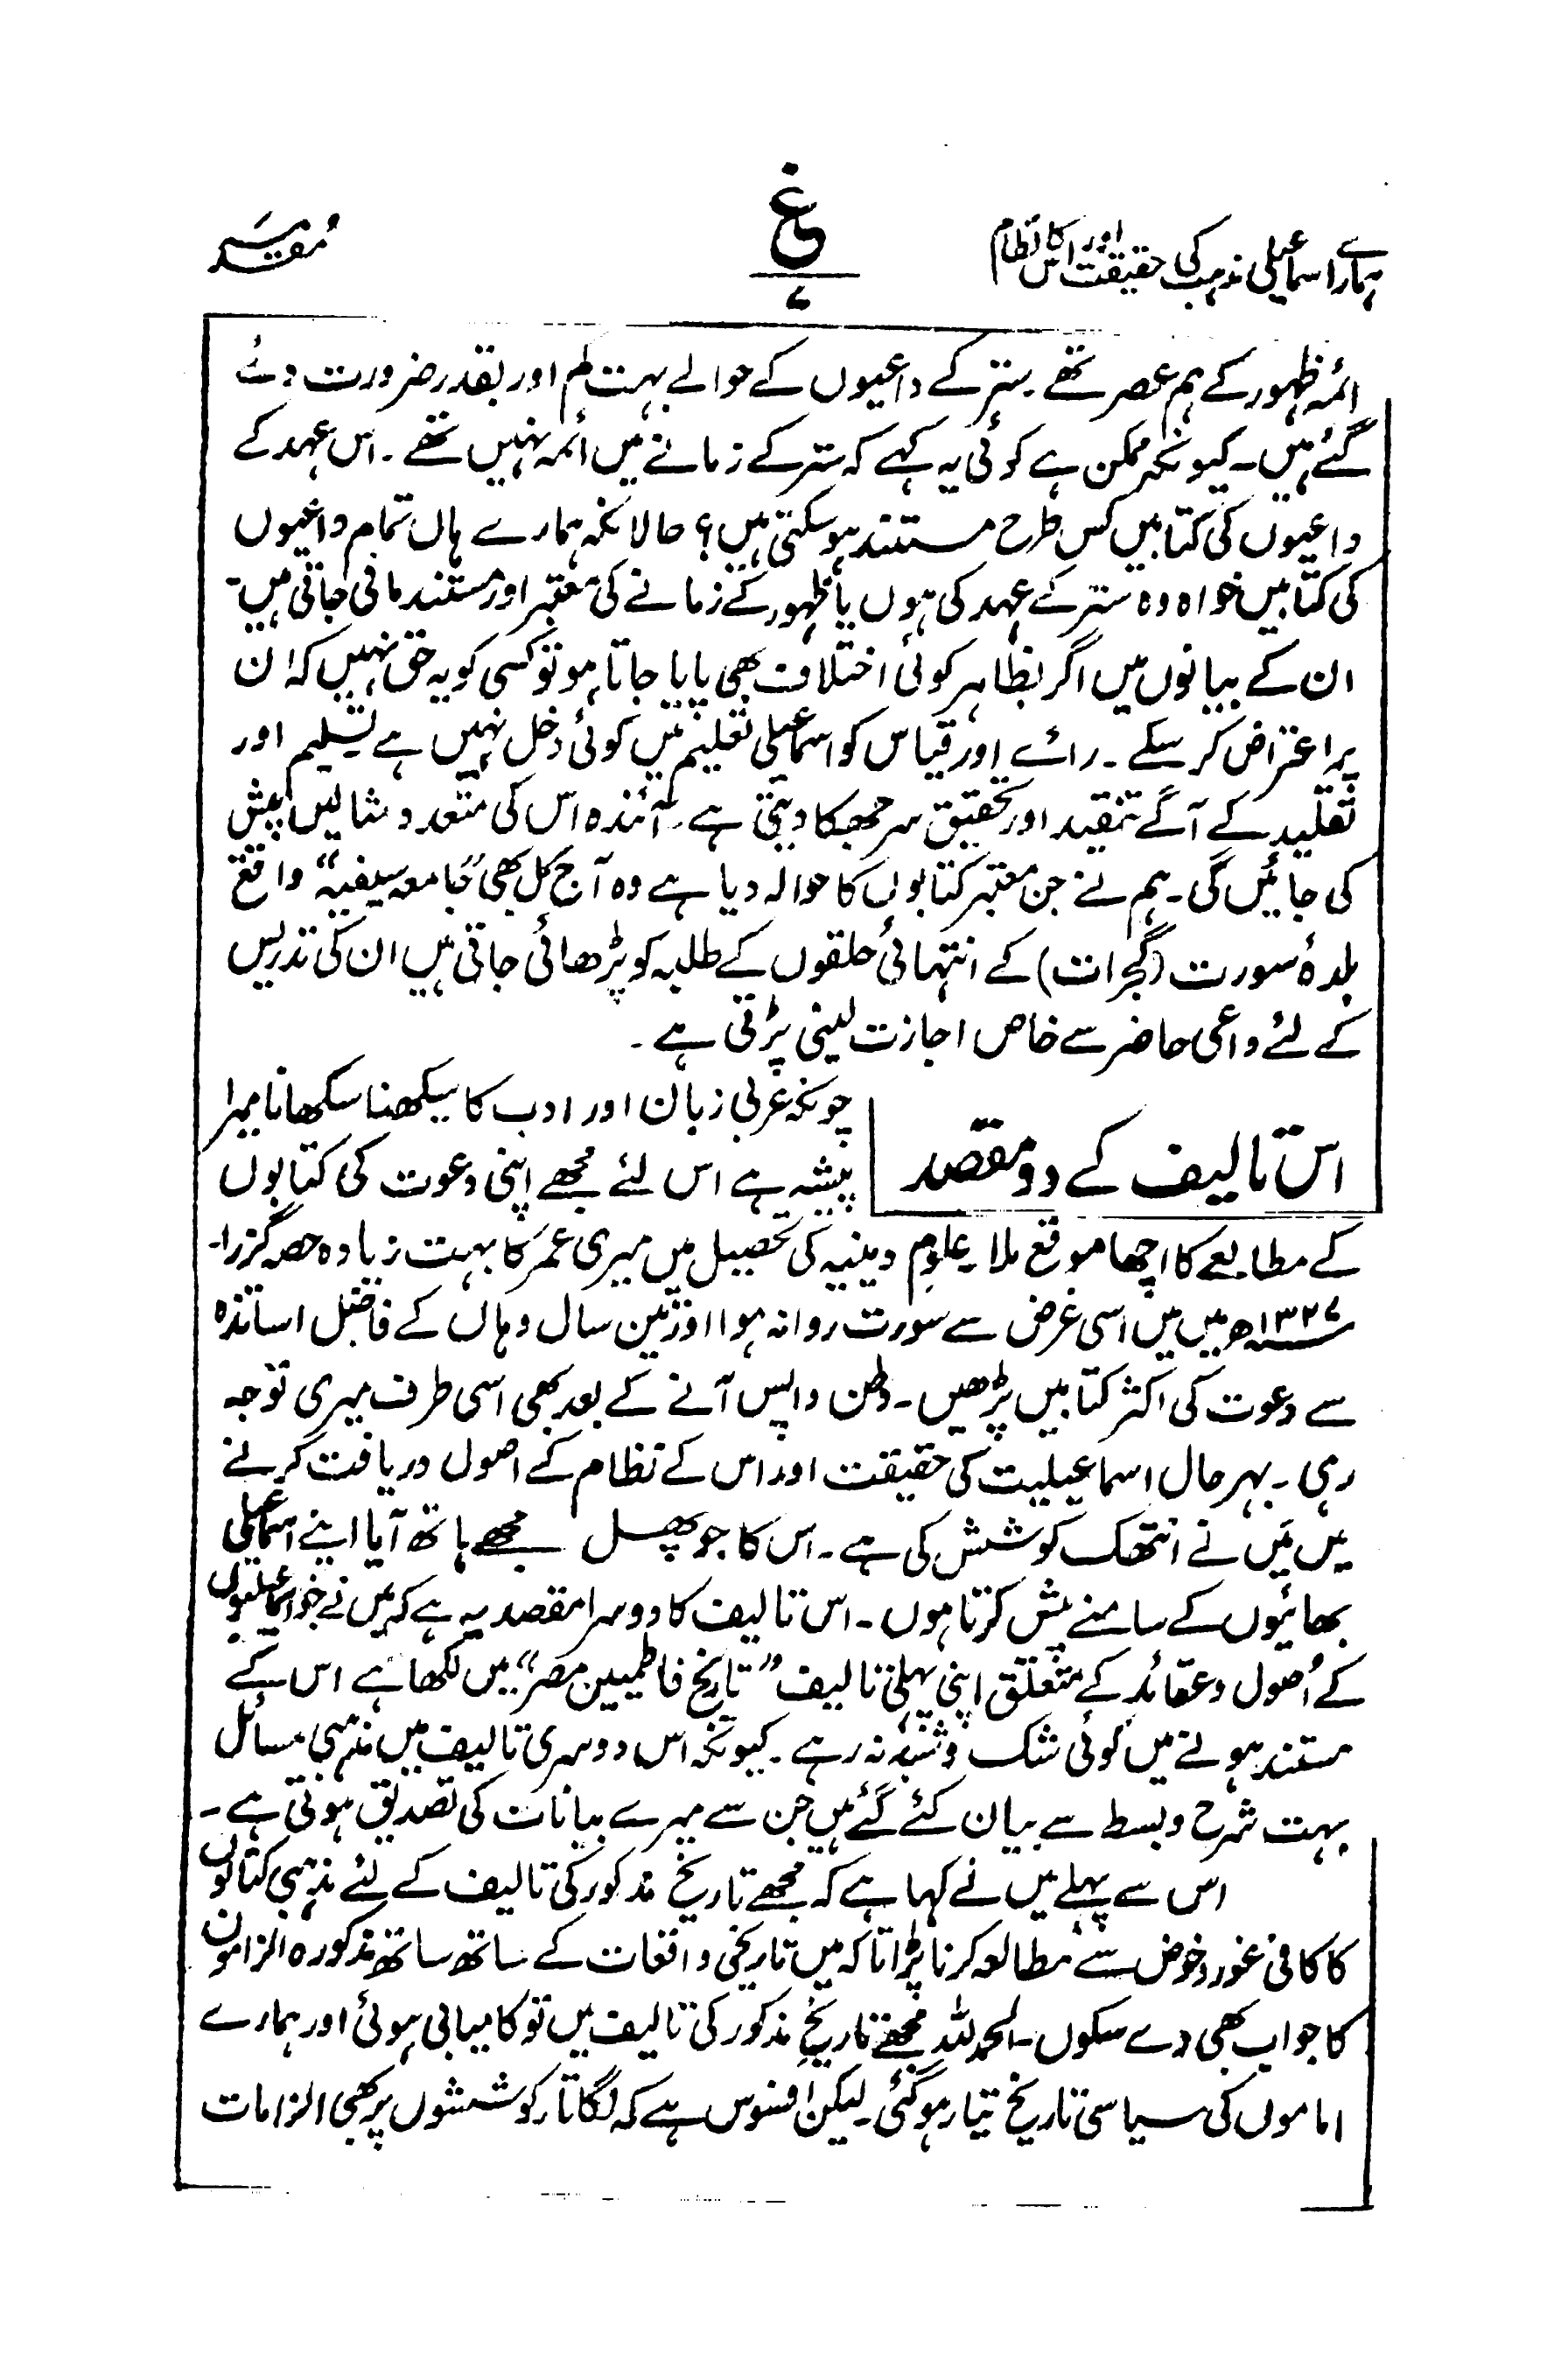 ہمارے اسماعیلی مذہب کی حقیقت اور اس کا نظام
غ
۷
مُقدمہ
ائمہ ظہور کے ہم عصر تھے ۔ ستر کے داعیوں کے حوالے بہت کم اور بقدر ضرورت دئے
گئے ہیں۔ کیونکہ ممکن ہے کوئی یہ کہے کہ ستر کے زمانے میں ائمہ نہیں تھے ۔ اس عہد کے
داعیوں کی کتابیں کس طرح مستند ہو سکتی ہیں؟ حالانکہ ہمارے ہاں تمام داعیوں
کی کتابیں خواہ وہ ستر کے عہد کی ہوں یا ظہور کے زمانے کی معتبر اور مستند مانی جاتی ہیں۔
ان کے بیانوں میں اگر بظاہر کوئی اختلاف بھی پایا جاتا ہو تو کسی کو یہ حق نہیں کہ ان
پر اعتراض کر سکے ۔ رائے اور قیاس کو اسماعیلی تعلیم میں کوئی دخل نہیں ہے تسلیم اور
تقلید کے آگے تنقید اور تحقیق سر جھکا دیتی ہے۔ آئندہ اس کی متعدد مثالیں پیش
کی جائیں گی۔ ہم نے جن معتبر کتابوں کا حوالہ دیا ہے وہ آج کل بھی "جامعہ سیفیہ" واقع
بلدۂ سورت (گجرات) کے انتہائی حلقوں کے طلبہ کو پڑھائی جاتی ہیں ان کی تدریس
کے لئے داعی حاضر سے خاص اجازت لینی پڑتی ہے ۔
اس تالیف کے دو مقصد
چونکہ عربی زبان اور ادب کا سیکھنا سکھانا میرا
پیشہ ہے اس لئے مجھے اپنی دعوت کی کتابوں
کے مطالعے کا اچھا موقع ملا ۔ علومِ دینیہ کی تحصیل میں میری عمر کا بہت زیادہ حصہ گزرا۔
۱۳۲۷ھ میں میں اسی غرض سے سورت روانہ ہوا اور تین سال وہاں کے فاضل اساتذہ
سے دعوت کی اکثر کتابیں پڑھیں۔ وطن واپس آنے کے بعد بھی اسی طرف میری توجہ
رہی ۔ بہر حال اسماعیلیت کی حقیقت اور اس کے نظام کے اصول دریافت کرنے
میں مَیں نے انتھک کوشش کی ہے ۔ اس کا جو پھل مجھے ہاتھ آیا اپنے اسماعیلی
بھائیوں کے سامنے پیش کرتا ہوں ۔ اس تالیف کا دوسرا مقصد یہ ہے کہ میں نے خود اسماعیلیوں
کے اُصول و عقائد کے متعلق اپنی پہلی تالیف "تاریخ فاطمیین مصر" میں لکھا ہے اس کے
مستند ہونے میں کوئی شک و شبہ نہ رہے ۔ کیونکہ اس دوسری تالیف میں مذہبی مسائل
بہت شرح و بسط سے بیان کئے گئے ہیں جن سے میرے بیانات کی تصدیق ہوتی ہے ۔
اس سے پہلے میں نے کہا ہے کہ مجھے تاریخ مذکور کی تالیف کے لئے مذہبی کتابوں
کا کافی غور و خوض سے مطالعہ کرنا پڑا تاکہ میں تاریخی واقعات کے ساتھ ساتھ مذکورہ الزاموں
کا جواب بھی دے سکوں ۔ الحمد للہ مجھے تاریخِ مذکور کی تالیف میں تو کامیابی ہوئی اور ہمارے
اماموں کی سیاسی تاریخ تیار ہو گئی۔ لیکن افسوس ہے کہ لگاتار کوششوں پر بھی الزامات